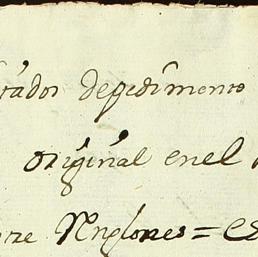 rados depedimento
original enel
Renglones = Es